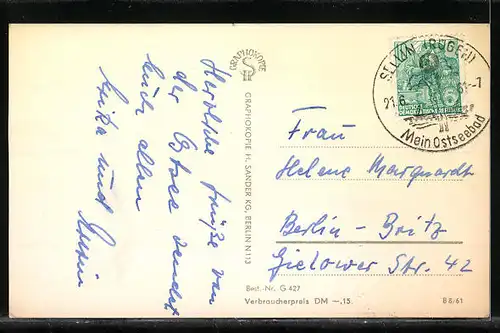 Herzliche Grüße von
der Ostsee sendet
Euch allen
Erika und
GRAPHOKOPIE
GRAPHOKOPIE H. SANDER KG, BERLIN N 113
Best.-Nr. G 427
Verbraucherpreis DM —.15.
B 8/61
SELLIN (RÜGEN)
21.6.
Mein Ostseebad
DEUTSCHE
DEMOKRATISCHE REPUBLIK
Frau
Helene Marquardt
Berlin-Britz
Gielower Str. 42